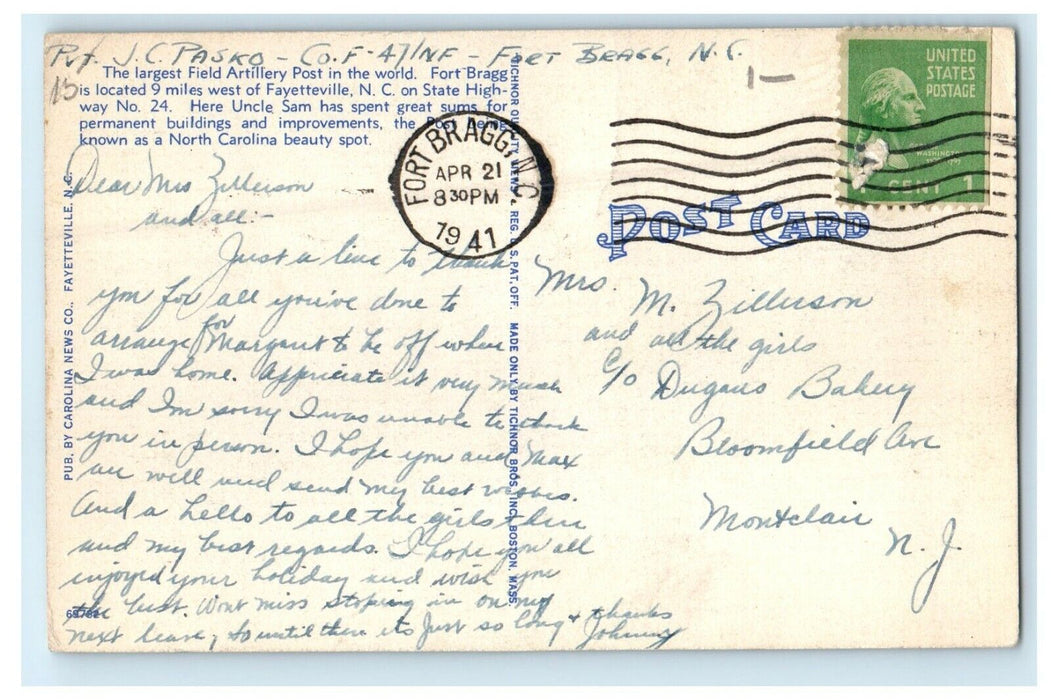 Pvt. J.C. PASKO - Co. F - 47 INF - FORT BRAGG, N.C.
15
1-
The largest Field Artillery Post in the world. Fort Bragg
is located 9 miles west of Fayetteville, N. C. on State High-
way No. 24. Here Uncle Sam has spent great sums for
permanent buildings and improvements, the Post being
known as a North Carolina beauty spot.
UNITED
STATES
POSTAGE
WASHINGTON
CENT 1
FORT BRAGG, N.C.
APR 21
8 30 PM
1941
POST CARD
PUB. BY CAROLINA NEWS CO., FAYETTEVILLE, N. C.
TICHNOR QUALITY VIEWS REG. U. S. PAT. OFF. MADE ONLY BY TICHNOR BROS., INC., BOSTON, MASS.
Dear Mrs Zillerson
and all:-
Just a line to thank
you for all you've done to
arrange for Margaret to be off when
I was home. Appriciate it very much
and I'm sorry I was unable to thank
you in person. I hope you and Max
are well and send my best wishes.
And a hello to all the girls there
and my best regards. I hope you all
enjoyed your holiday and wish you
the best. Wont miss stoping in on my
next leave, so until then its just so long & thanks
Johnny
Mrs. M. Zillerson
and all the girls
c/o Dugans Bakery
Bloomfield Ave
Montclair
N. J.